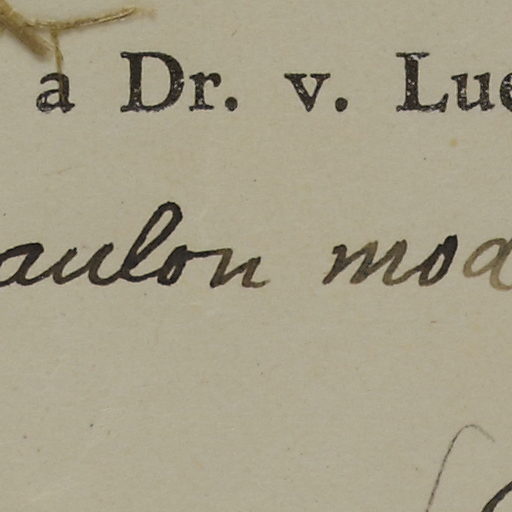 a Dr. v. Lue
aulon mod